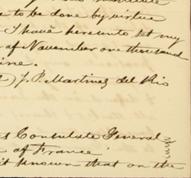 to be done by virtue
I have hereunto set my
of November one thousand
ine.
J. P. Martinez del Rio
Consulate General
of France
it known that on the